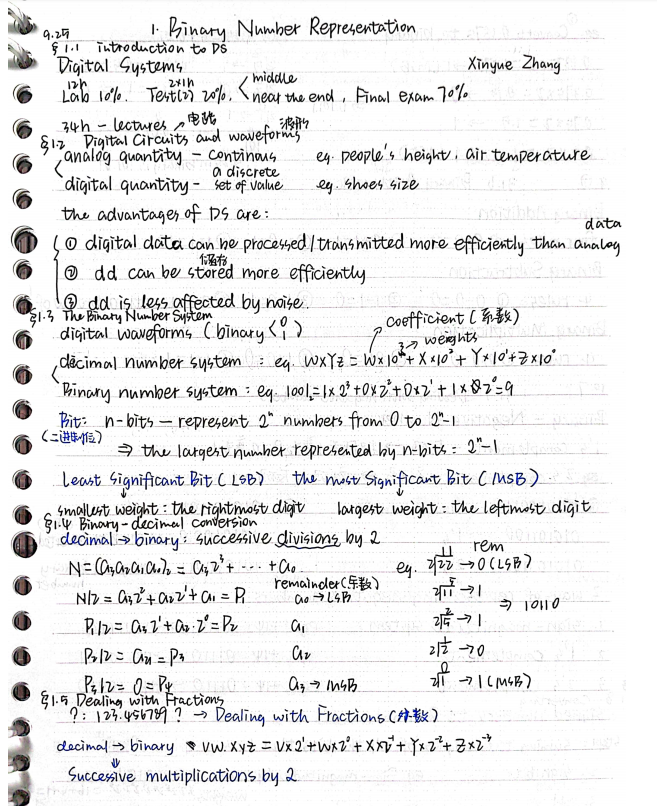 9.25
1. Binary Number Representation
§1.1 introduction to DS
Digital Systems
Xinyue Zhang
12h 2x1h middle
Lab 10%. Test(2) 20%. < near the end, Final exam 70%
34h - lectures 电路 波形
§1.2 Digital Circuits and waveforms
analog quantity - continous eg. people's height, air temperature
digital quantity - a discrete set of value eg. shoes size
the advantages of DS are:
data
① digital data can be processed/transmitted more efficiently than analog
储存
② dd can be stored more efficiently
③ dd is less affected by noise.
§1.3 The Binary Number System
coefficient (系数)
digital waveforms (binary < 0 1)
weights
decimal number system: eg. WXYZ = W×10³+X×10²+Y×10¹+Z×10⁰
Binary number system: eg. 1001₂=1×2³+0×2²+0×2¹+1×2⁰=9
Bit: n-bits — represent 2ⁿ numbers from 0 to 2ⁿ-1
(二进制位)
⇒ the largest number represented by n-bits: 2ⁿ-1
Least Significant Bit (LSB) the most Significant Bit (MSB).
smallest weight: the rightmost digit largest weight: the leftmost digit
§1.4 Binary-decimal conversion
decimal → binary: successive divisions by 2
11 rem
N=(a₃a₂a₁a₀)₂ = a₃2³+ ··· +a₀ eg. 2√22 → 0 (LSB)
remainder (余数) 5
N/2 = a₃2²+a₂2¹+a₁ = P₁ a₀ → LSB 2√11 → 1
⇒ 10110
2
P₁/2 = a₃2¹+a₂·2⁰=P₂ a₁ 2√5 → 1
1
P₂/2 = a₃ = P₃ a₂ 2√2 → 0
0
P₃/2 = 0 = P₄ a₃ → MSB 2√1 → 1 (MSB)
§1.5 Dealing with Fractions
?: 123.456789 ? → Dealing with Fractions (分数)
decimal → binary VW.XYZ = V×2¹+W×2⁰+X×2⁻¹+Y×2⁻²+Z×2⁻³
⇓
Successive multiplications by 2